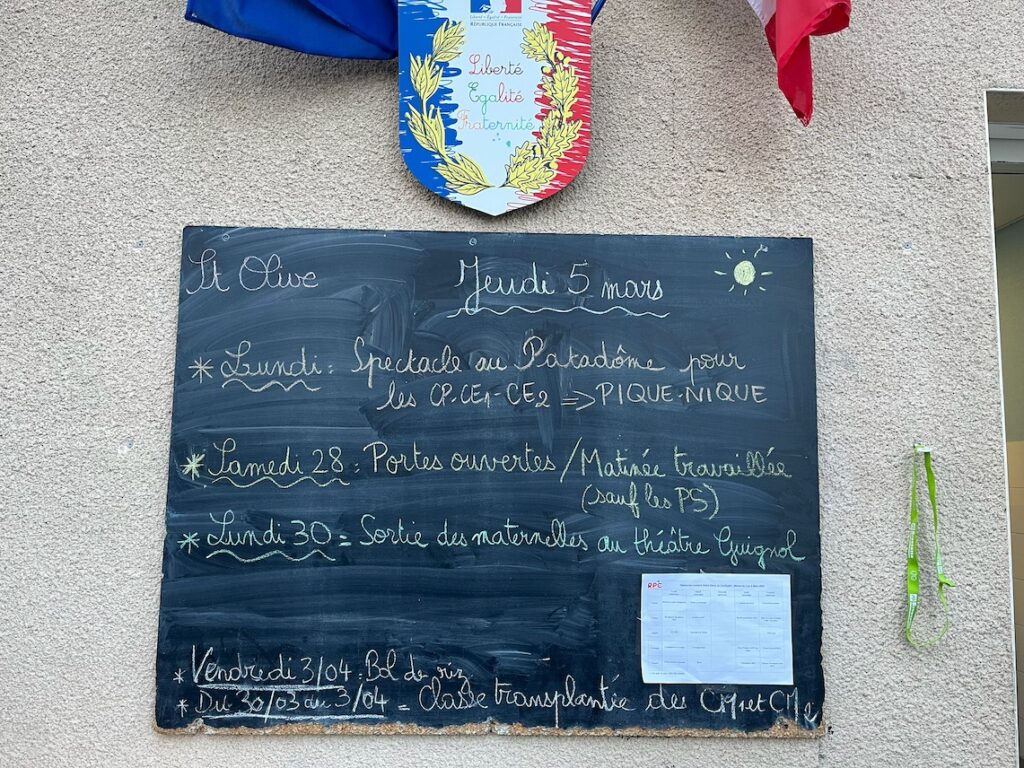 Liberté • Égalité • Fraternité
RÉPUBLIQUE FRANÇAISE
Liberté
Égalité
Fraternité
St Olive
Jeudi 5 mars
* Lundi : Spectacle au Patadôme pour
les CP-CE1-CE2 => PIQUE-NIQUE
* Samedi 28 : Portes ouvertes / Matinée travaillée
(sauf les PS)
* Lundi 30 = Sortie des maternelles au théâtre Guignol
RPC
* Vendredi 3/04 : Bol de riz
* Du 30/03 au 3/04 = Classe transplantée des CM1 et CM2